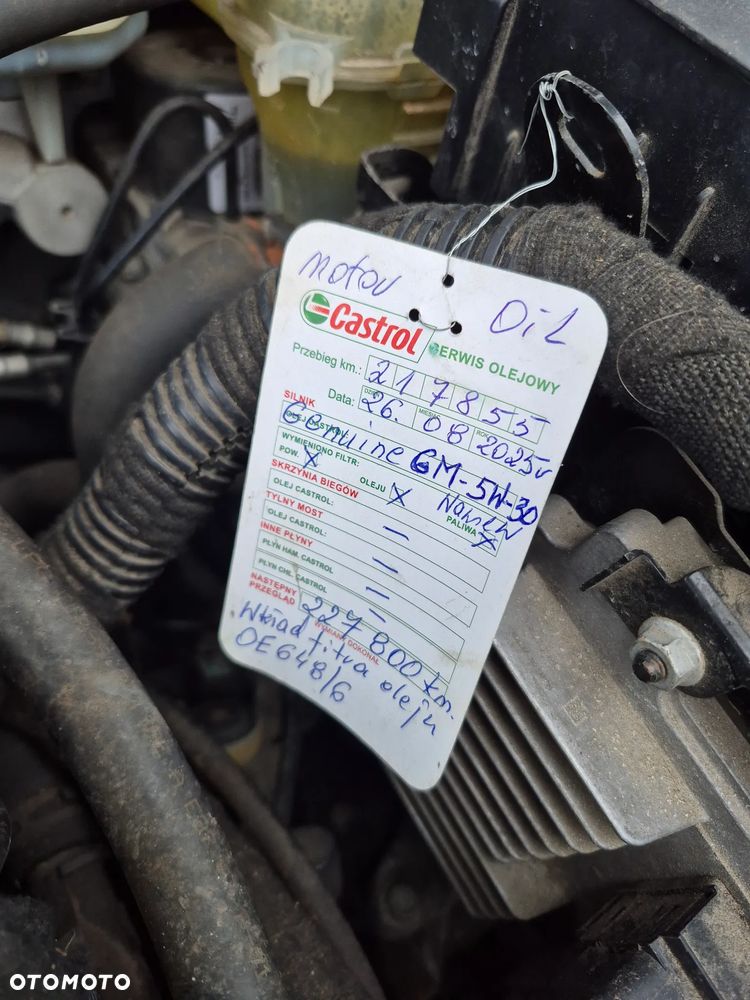 motor OiL
Castrol
SERWIS OLEJOWY
Przebieg km.: 217855
Data: 26. 08 2025r
SILNIK
OLEJ CASTROL:
Genuine GM-5W-30
WYMIENIONO FILTR:
POW. X OLEJU X PALIWA X
SKRZYNIA BIEGÓW
OLEJ CASTROL: —
TYLNY MOST
OLEJ CASTROL: —
INNE PŁYNY
PŁYN HAM. CASTROL —
PŁYN CHŁ. CASTROL —
NASTĘPNY PRZEGLĄD 227800 km.
WYMIANY DOKONAŁ
Wkład filtra oleju
OE648/6
OTOMOTO